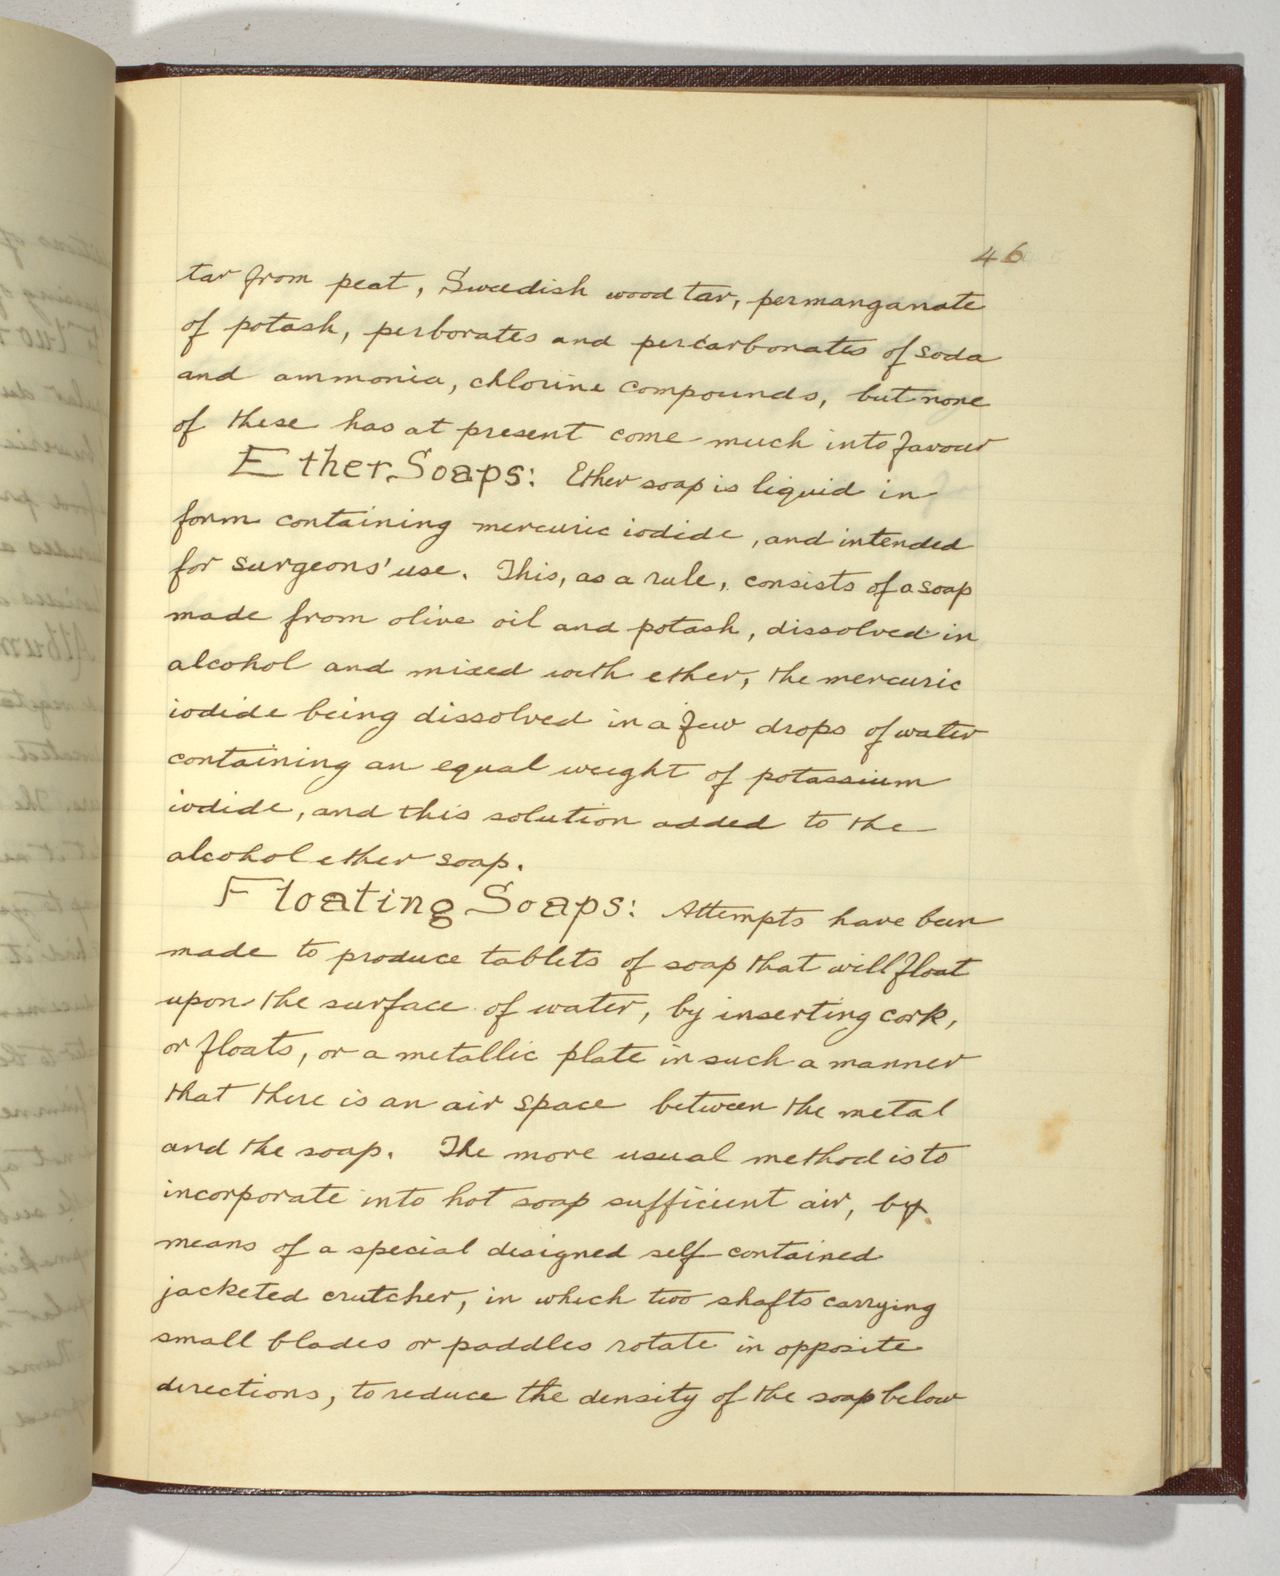 46
tar from peat, Swedish wood tar, permanganate
of potash, perborates and percarbonates of soda
and ammonia, chlorine compounds, but none
of these has at present come much into favour
Ether Soaps: Ether soap is liquid in
form containing mercuric iodide, and intended
for surgeons' use. This, as a rule, consists of a soap
made from olive oil and potash, dissolved in
alcohol and mixed with ether, the mercuric
iodide being dissolved in a few drops of water
containing an equal weight of potassium
iodide, and this solution added to the
alcohol ether soap.
Floating Soaps: Attempts have been
made to produce tablets of soap that will float
upon the surface of water, by inserting cork,
or floats, or a metallic plate in such a manner
that there is an air space between the metal
and the soap. The more usual method is to
incorporate into hot soap sufficient air, by
means of a special designed self-contained
jacketed crutcher, in which two shafts carrying
small blades or paddles rotate in opposite
directions, to reduce the density of the soap below